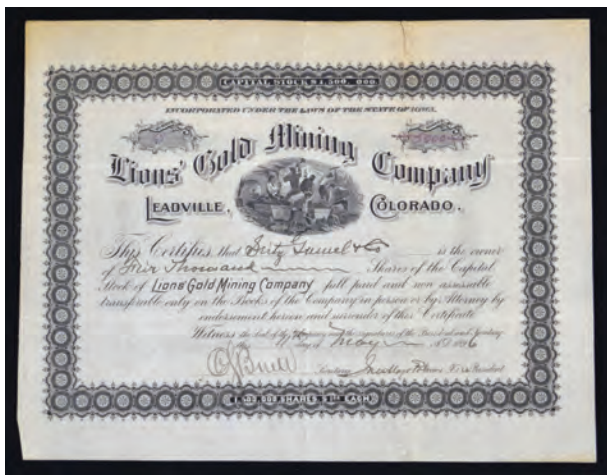 CAPITAL STOCK $1,500,000
INCORPORATED UNDER THE LAWS OF THE STATE OF IOWA.
Lions' Gold Mining Company
LEADVILLE, COLORADO.
This Certifies that & Co is the owner
of Thousand Shares of the Capital
Stock of Lions Gold Mining Company full paid and non assessable
transferable only on the Books of the Company in person or by Attorney by
endorsement hereon and surrender of this Certificate.
Witness the Seal of the Company and the signatures of the President and Secretary
this day of May 1896
Secretary President
1,500,000 SHARES $1.00 EACH